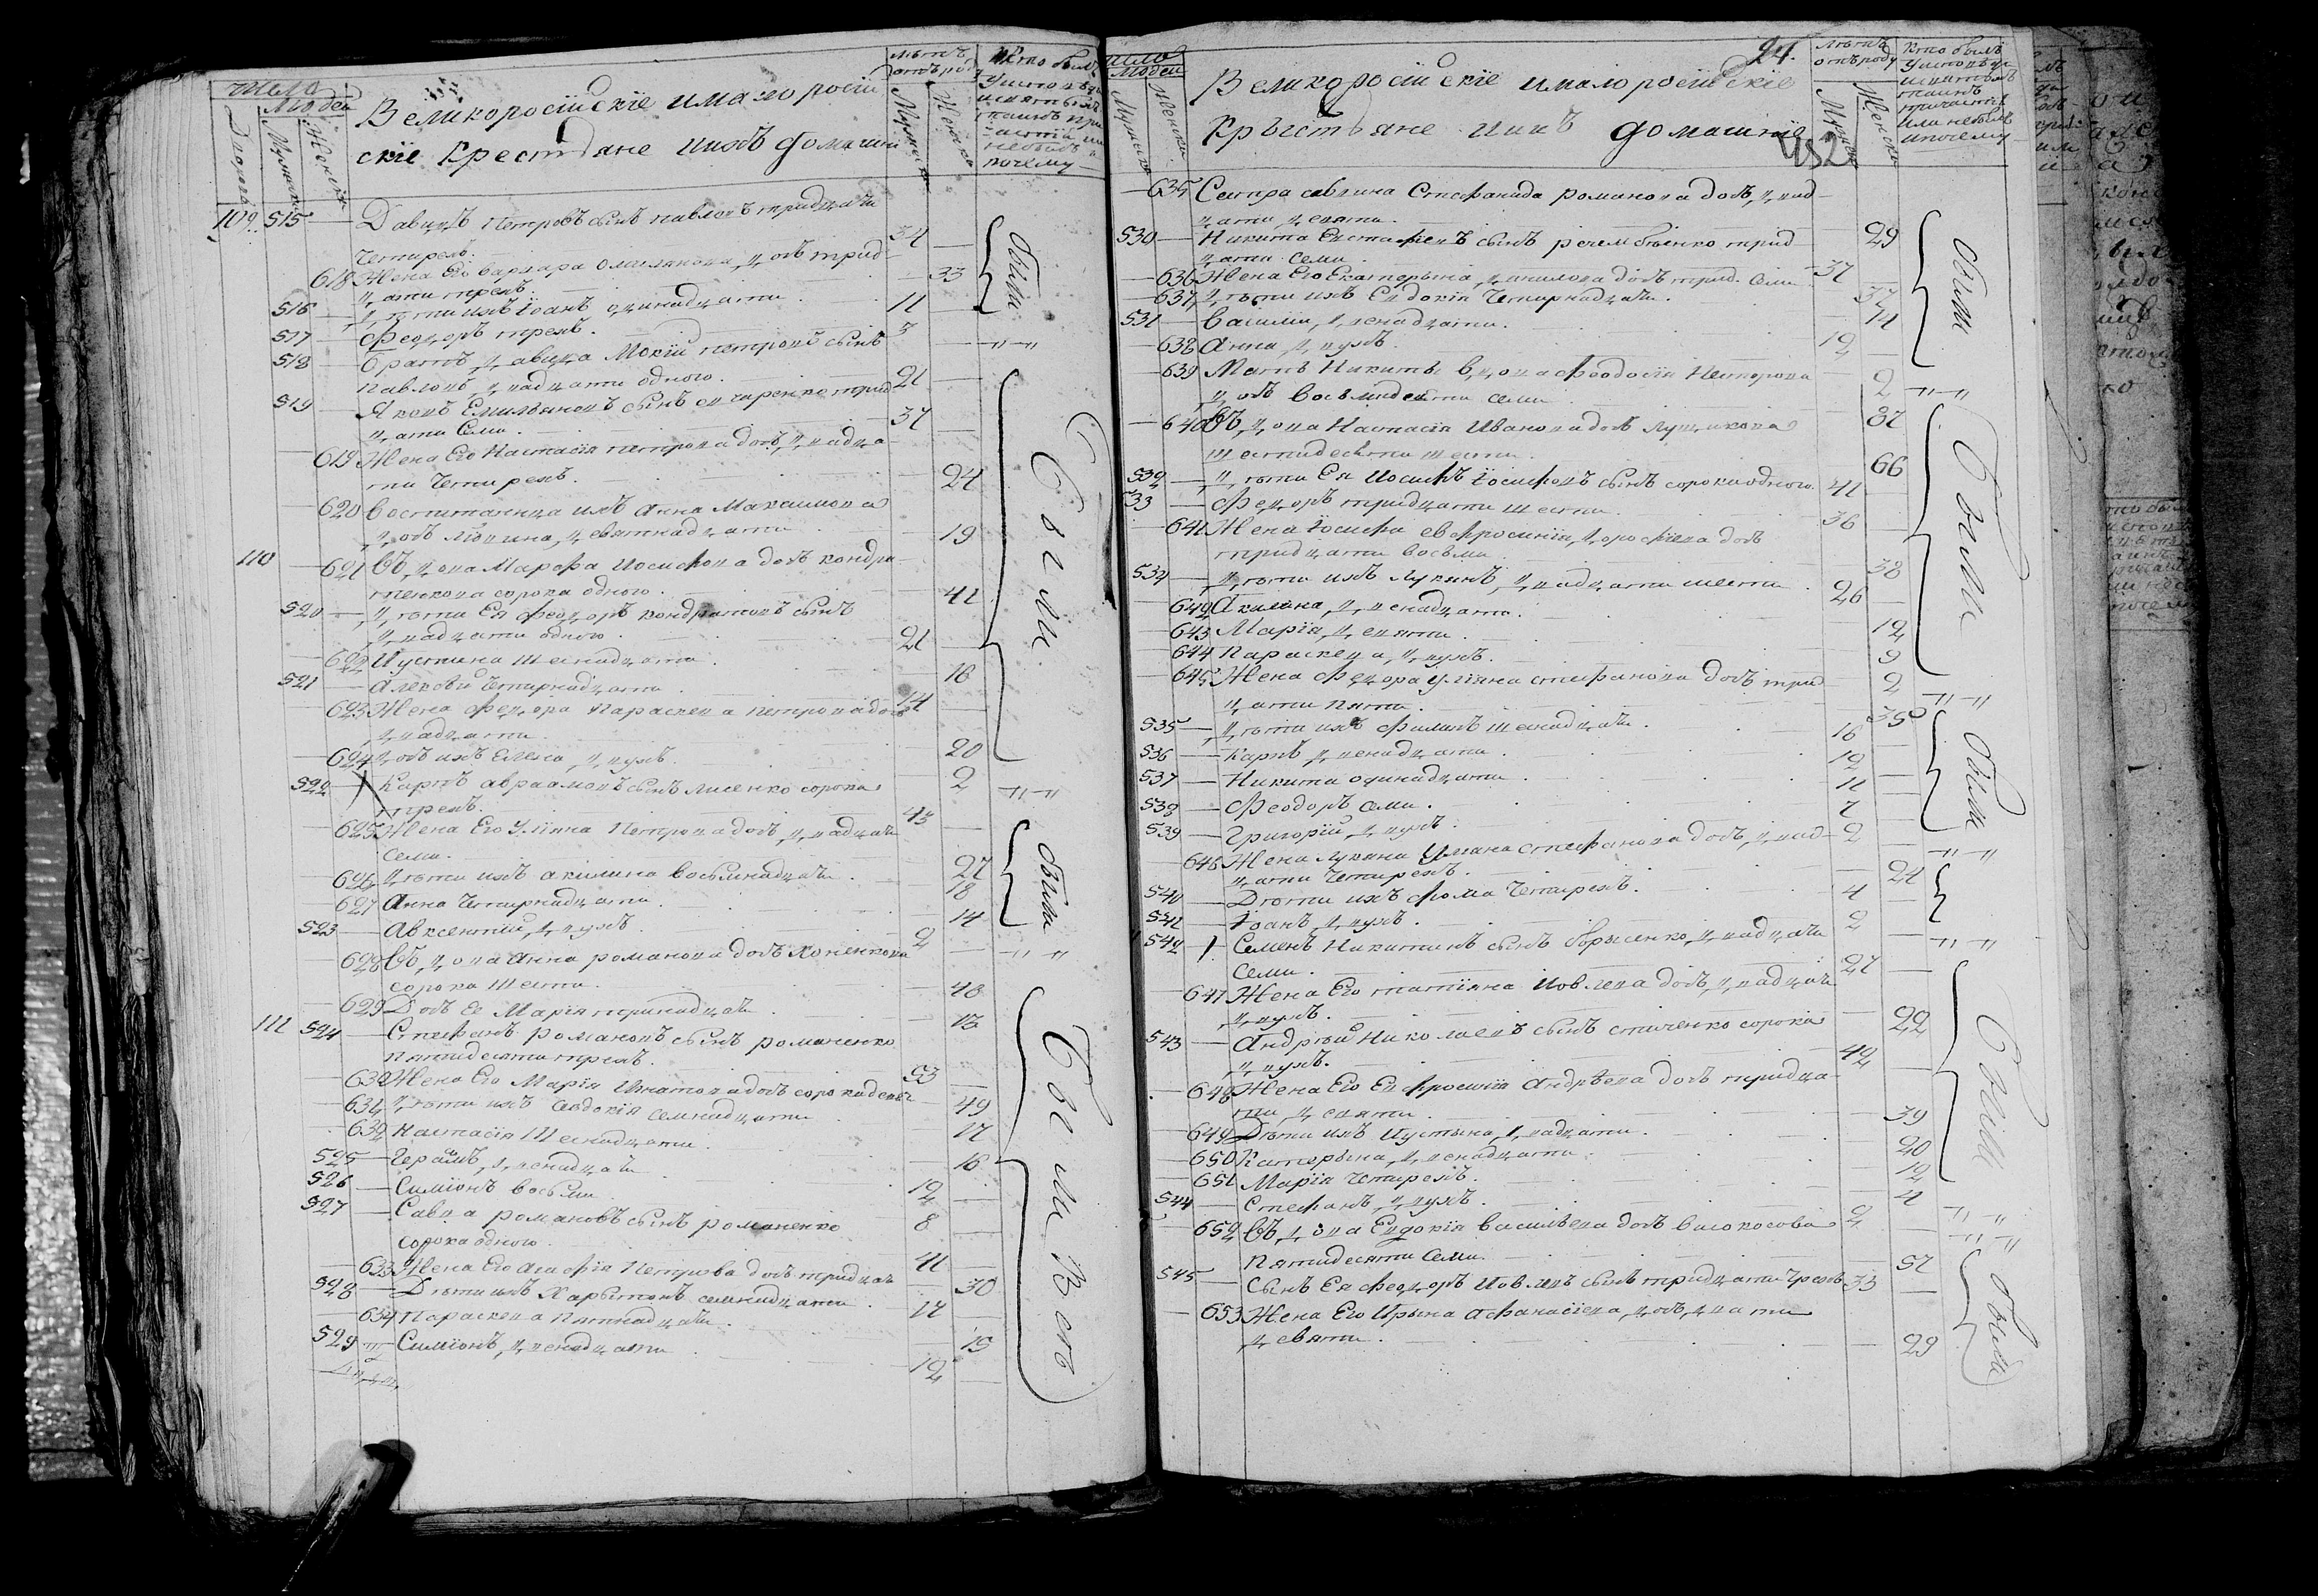 Число
Людей
Дворовъ
Мужеск
Женск
Великоросiйскiе и малоросiй
скiе Крестьяне и ихъ домашнiе
Лѣтъ
отъ роду
Мужеск
Женска
Кто былъ
у исповѣди
и святыхъ
таинъ при
частiя или
небылъ и
почему
109 515 Давидъ Петровъ сынъ павловъ тридцати
четирехъ. 34
618 Жена Его варвара Омелянова дочь трид
цати трехъ. 33
были
516 дѣти ихъ Iоанъ одинадцати 11
517 Феодоръ трехъ. 3
518 братъ давида Мокiй петровъ сынъ
павловъ двадцати одного. 21
519 Яковъ Емильяновъ сынъ трид
цати Семи. 37
619 Жена Его Настасiя петрова дочь двадца
ти Четирехъ. 24
620 воспитаница ихъ Анна Максимова
дочь девятнадцати 19
110 621 Въдова Марфа Иосифова дочь кондра
тенкова сорока одного. 41
520 дѣти Ея Феодоръ кондратовъ сынъ
двадцати одного. 21
622 Иустина шеснадцати. 16
521 Алексѣй Четирнадцати 14
623 Жена Феодора Параскева петрова дочь
двадцати. 20
624 дочь ихъ Елена двухъ. 2
Были
522 Карпъ авраамовъ сынъ лисенко сорока
трехъ. 43
625 Жена Его Улiяна Петрова дочь двадцати
семи. 27
626 дѣти ихъ акилина восьмнадцати. 18
627 Анна Четирнадцати. 14
были
523 Авксентiй двухъ. 2
628 Въдова Анна романова дочь Хоменкова
сорока Шести. 46
629 Дочь Ее Марiя тринадцати. 13
111 524 Стефанъ романовъ сынъ романенко
Пятидесяти трехъ. 53
630 Жена Его Марiя Игнатова дочь сорока девяти 49
631 дѣти ихъ Евдокiя семнадцати 17
632 Настасiя Шеснадцати. 16
525 двенадцати 12
526 Симiонъ восьми 8
527 Савва романовъ сынъ романенко
сорока одного. 41
633 Жена Его Агафiя Петрова дочь тридцати 30
528 Дѣти ихъ Харытонъ семнадцати. 17
634 Параскева Пятнадцати. 15
529 Симiонъ двенадцати 12
Были Всѣ
число
Людей
Мужеск
Женска
24.
Великоросiйскiе и малоросiйскiе
Крыстьяне и ихъ домашнiе
452
Лѣтъ
отъ роду
Мужеск
Женска
Кто былъ
у исповѣди
и святыхъ
таинъ
причастiя
или небылъ
и почему
635 Сестра саввина Стефанида романова дочь двад
цати девяти. 29
530 Никита Евстафiевъ сынъ трид
цати семи. 37
636 Жена Его Екатерына дочь трид. семи 37
637 дѣти ихъ Евдокiя Четирнадцати. 14
531 василiй двенадцати. 12
638 Анна двухъ. 2
639 Мать Никиты вдова Феодосiя Несторова
дочь восьмидесяти семи 87
были
640 Въдова Настасiя Иванова дочь
шестидесяти шести. 66
532 дѣти Ея Иосифъ Iосифовъ сынъ сорока одного. 41
533 Феодоръ тридцати шести. 36
641 Жена Iосифа евфросинiя дорофiева дочь
тридцати восьми. 38
534 дѣти ихъ Лукинъ двадцати шести 26
642 Акилина двенадцати. 12
643 Марiя девяти. 9
644 Параскева двухъ. 2
645 Жена Феодора Улiяна стефанова дочь трид
цати пяти. 35
Были
535 дѣти ихъ Филипъ шеснадцати. 16
536 Карпъ двенадцати. 12
537 Никита одинадцати. 11
538 Феодоръ семи. 7
539 Григорiй двухъ. 2
646 Жена лукина Улiяна стефанова дочь двад
цати Четирехъ. 24
были
540 Дѣти ихъ Фома Четирехъ. 4
541 Iоанъ двухъ. 2
542 Семенъ Никитинъ сынъ борысенко двадцати
семи. 27
647 Жена Его татiяна Иовлева дочь двадцати
двухъ. 22
543 Андрѣй Николаевъ сынъ сорока
двухъ. 42
648 Жена Его Евфросинiя Андрѣева дочь тридца
ти девяти. 39
649 Дѣти ихъ Иустына двадцати. 20
650 Катерына двенадцати. 12
651 Марiя Четирехъ. 4
Были
544 Стефанъ двухъ. 2
652 Въдова Евдокiя васильева дочь билокосова
Пятидесяти Семи. 57
545 Сынъ Ея Феодоръ Иовлевъ сынъ тридцати трехъ 33
653 Жена Его Ирына Афанасiева дочь двацати
девяти. 29
были